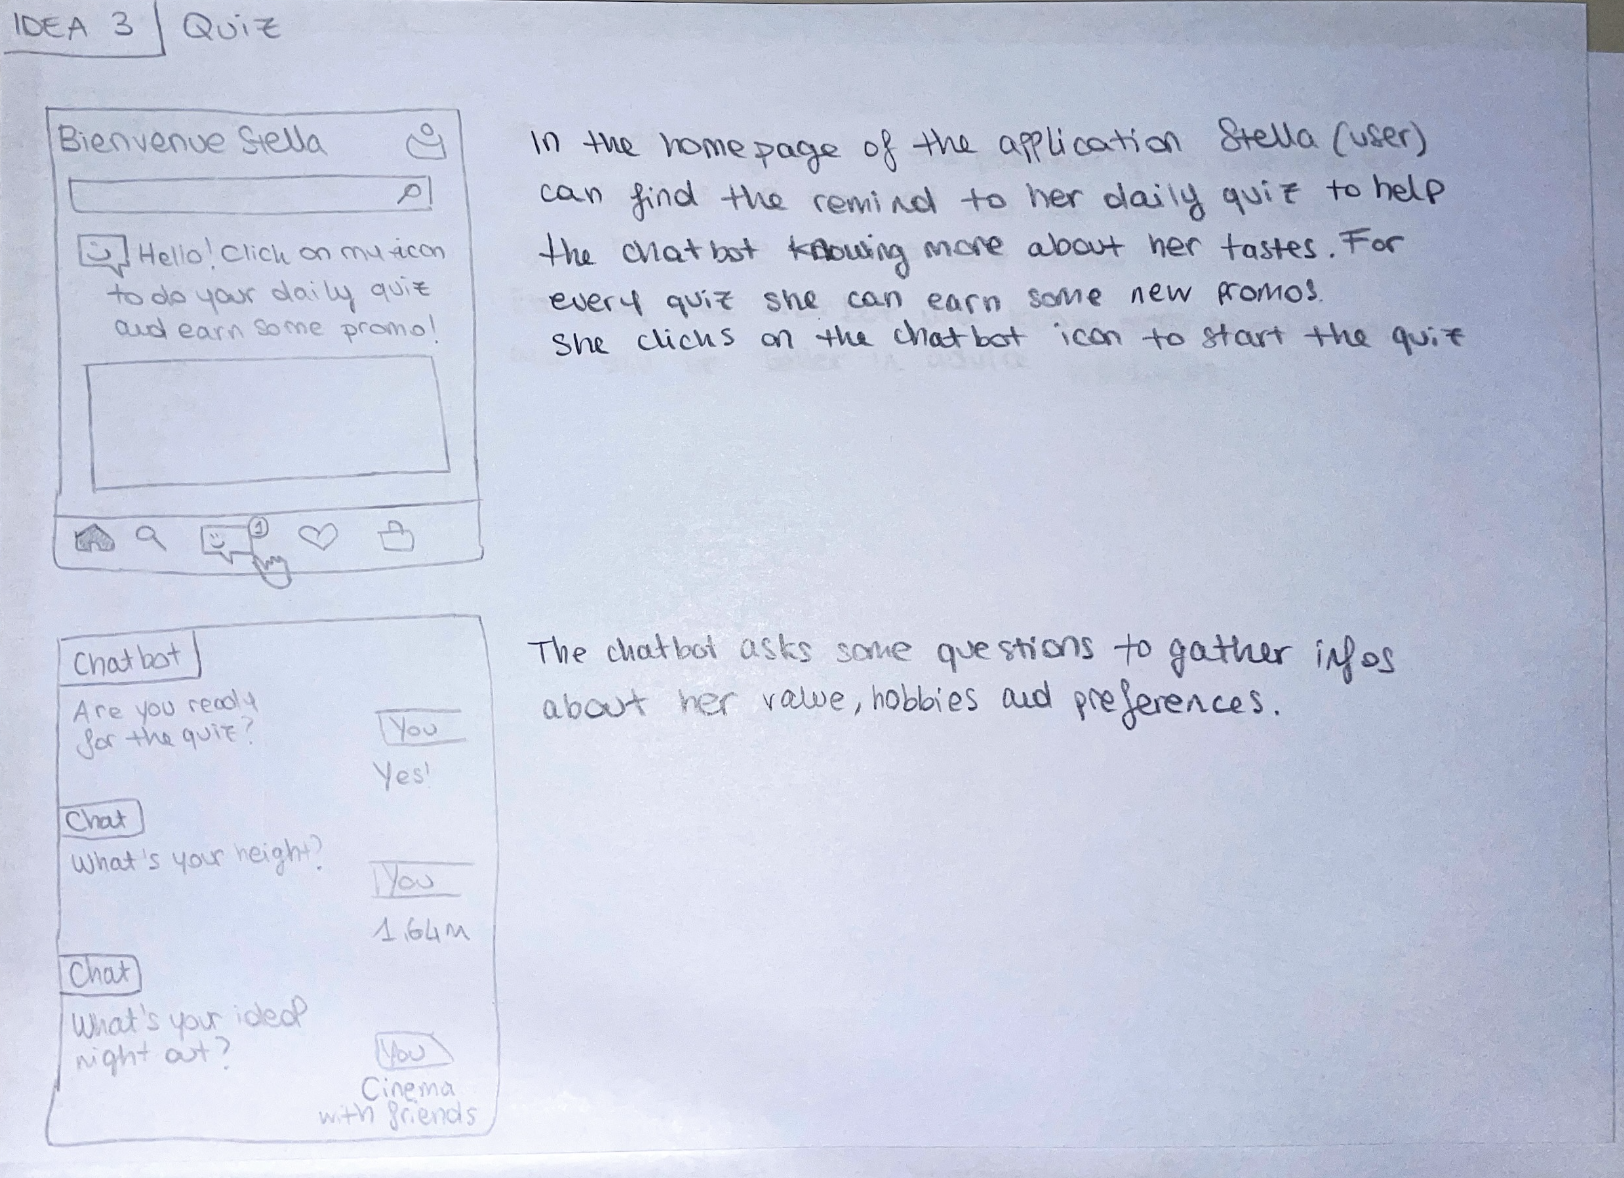 IDEA 3 | Quiz
Bienvenue Stella
Hello! Click on my icon
to do your daily quiz
and earn some promo!
1
In the homepage of the application Stella (user)
can find the remind to her daily quiz to help
the chatbot knowing more about her tastes. For
every quiz she can earn some new promos.
She clicks on the chatbot icon to start the quiz
Chatbot
Are you ready
for the quiz?
You
Yes!
Chat
What's your height?
You
1.64m
Chat
What's your ideal
night out?
You
Cinema
with friends
The chatbot asks some questions to gather infos
about her value, hobbies and preferences.